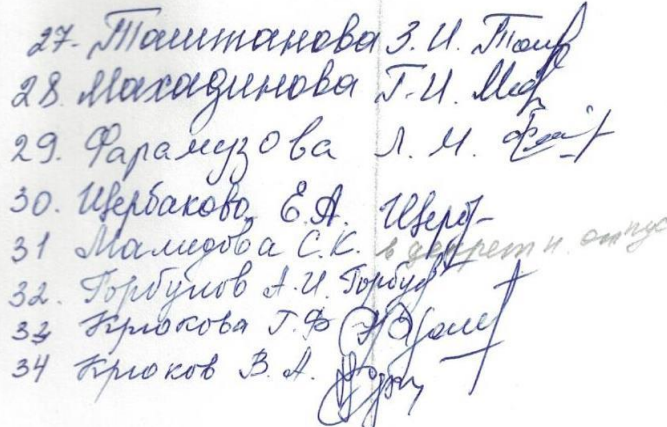 27. Таштанова З. И.
28. Махадинова Г. И.
29. Фарамузова Л. М.
30. Щербакова Е. А. Щерб-
31 Мамедова С. К. в декретн. отпус
32. Горбунов А. И. Горбу
33 Крюкова Г. Ф
34 Крюков В. А.